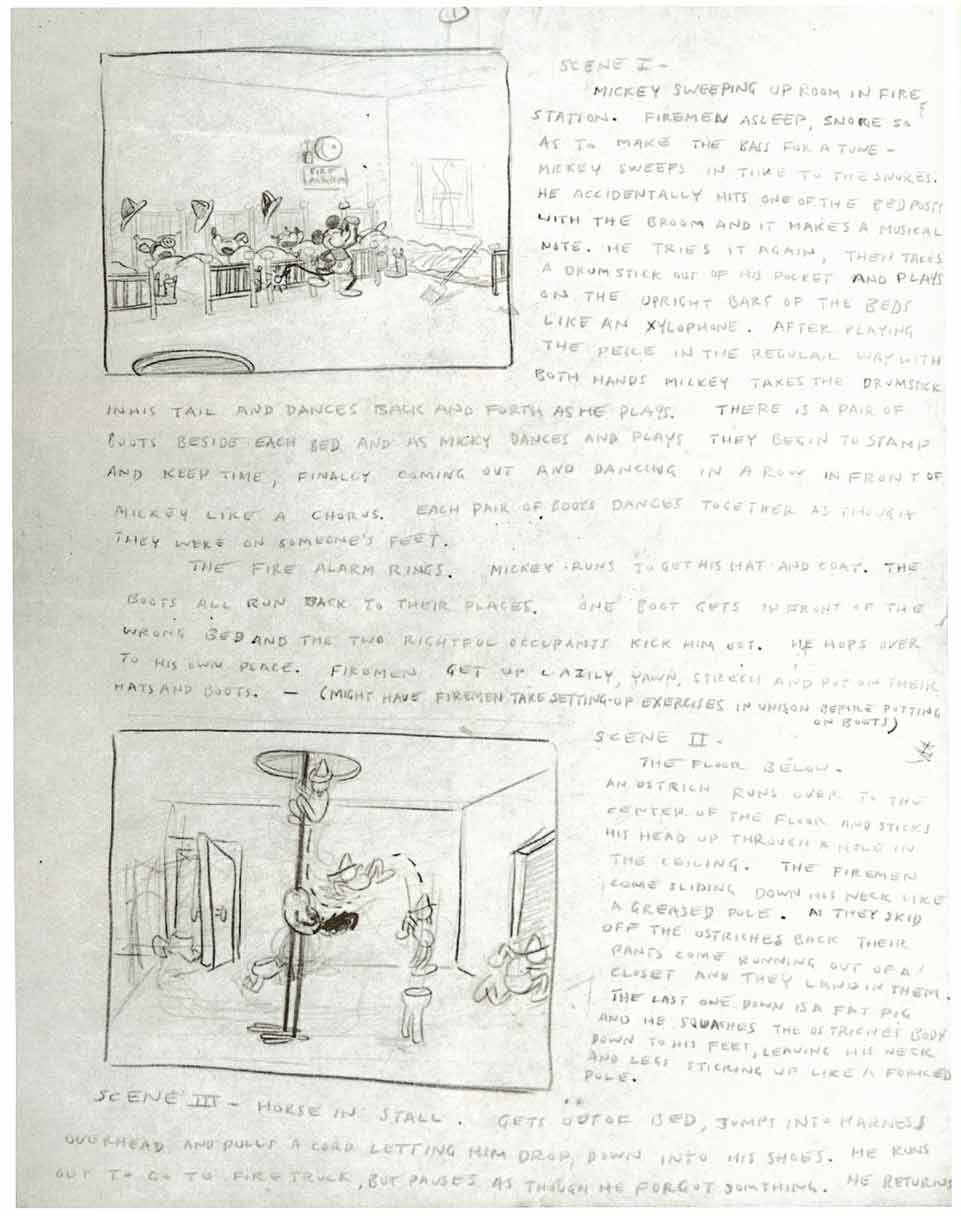 1
FIRE
ALARM
SCENE I -
MICKEY SWEEPING UP ROOM IN FIRE
STATION. FIREMEN ASLEEP, SNORE SO
AS TO MAKE THE BASS FOR A TUNE -
MICKEY SWEEPS IN TIME TO THE SNORES.
HE ACCIDENTALLY HITS ONE OF THE BED POSTS
WITH THE BROOM AND IT MAKES A MUSICAL
NOTE. HE TRIES IT AGAIN, THEN TAKES
A DRUM STICK OUT OF HIS POCKET AND PLAYS
ON THE UPRIGHT BARS OF THE BEDS
LIKE AN XYLOPHONE. AFTER PLAYING
THE PEICE IN THE REGULAR WAY WITH
BOTH HANDS MICKEY TAKES THE DRUMSTICK
IN HIS TAIL AND DANCES BACK AND FORTH AS HE PLAYS. THERE IS A PAIR OF
BOOTS BESIDE EACH BED AND AS MICKY DANCES AND PLAYS THEY BEGIN TO STAMP
AND KEEP TIME, FINALLY COMING OUT AND DANCING IN A ROW IN FRONT OF
MICKEY LIKE A CHORUS. EACH PAIR OF BOOTS DANCES TOGETHER AS THOUGH
THEY WERE ON SOMEONE'S FEET.
THE FIRE ALARM RINGS. MICKEY RUNS TO GET HIS HAT AND COAT. THE
BOOTS ALL RUN BACK TO THEIR PLACES. ONE BOOT GETS IN FRONT OF THE
WRONG BED AND THE TWO RIGHTFUL OCCUPANTS KICK HIM OUT. HE HOPS OVER
TO HIS OWN PLACE. FIREMEN GET UP LAZILY, YAWN, STRECH AND PUT ON THEIR
HATS AND BOOTS. - (MIGHT HAVE FIREMEN TAKE SETTING-UP EXERCISES IN UNISON BEFORE PUTTING
ON BOOTS)
SCENE II -
THE FLOOR BELOW.
AN OSTRICH RUNS OVER TO THE
CENTER OF THE FLOOR AND STICKS
HIS HEAD UP THROUGH A HOLE IN
THE CEILING. THE FIREMEN
COME SLIDING DOWN HIS NECK LIKE
A GREASED POLE. AS THEY SKID
OFF THE OSTRICHES BACK THEIR
PANTS COME RUNNING OUT OF A
CLOSET AND THEY LAND IN THEM.
THE LAST ONE DOWN IS A FAT PIG
AND HE SQUASHES THE OSTRICHES BODY
DOWN TO HIS FEET, LEAVING HIS NECK
AND LEGS STICKING UP LIKE A FORKED
POLE.
SCENE III - HORSE IN STALL. GETS OUT OF BED, JUMPS INTO HARNESS
OVERHEAD AND PULLS A CORD LETTING HIM DROP DOWN INTO HIS SHOES. HE RUNS
OUT TO GO TO FIRE TRUCK, BUT PAUSES AS THOUGH HE FORGOT SOMTHING. HE RETURNS